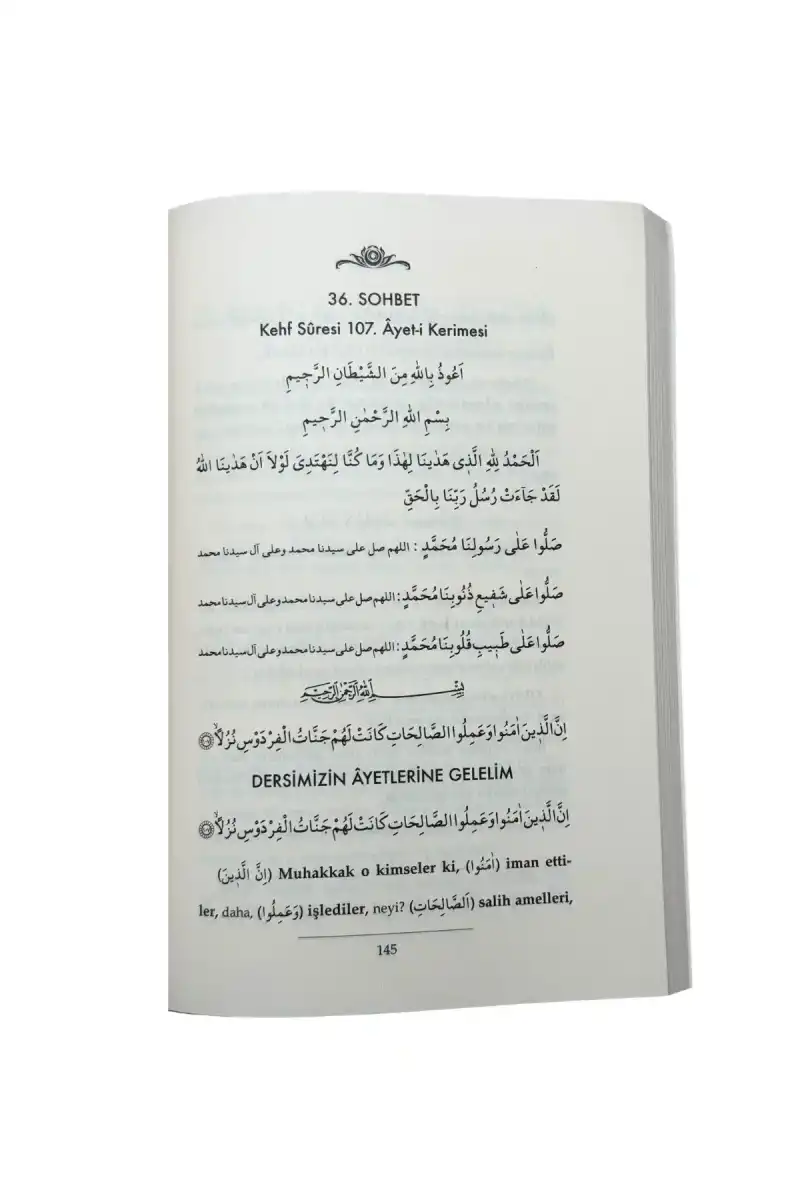 36. SOHBET
Kehf Sûresi 107. Âyet-i Kerimesi
اَعُوذُ بِاللّٰهِ مِنَ الشَّيْطَانِ الرَّج۪يمِ
بِسْمِ اللّٰهِ الرَّحْمٰنِ الرَّح۪يمِ
اَلْحَمْدُ لِلّٰهِ الَّذ۪ى هَدٰينَا لِهٰذَا وَمَا كُنَّا لِنَهْتَدِىَ لَوْلَا اَنْ هَدٰينَا اللّٰهُ
لَقَدْ جَآءَتْ رُسُلُ رَبِّنَا بِالْحَقِّ
صَلُّوا عَلٰى رَسُولِنَا مُحَمَّدٍ : اللهم صل على سيدنا محمد وعلى آل سيدنا محمد
صَلُّوا عَلٰى شَف۪يعِ ذُنُوبِنَا مُحَمَّدٍ : اللهم صل على سيدنا محمد وعلى آل سيدنا محمد
صَلُّوا عَلٰى طَب۪يبِ قُلُوبِنَا مُحَمَّدٍ : اللهم صل على سيدنا محمد وعلى آل سيدنا محمد
بِسْمِ اللّٰهِ الرَّحْمٰنِ الرَّحِيمِ
اِنَّ الَّذ۪ينَ اٰمَنُوا وَعَمِلُوا الصَّالِحَاتِ كَانَتْ لَهُمْ جَنَّاتُ الْفِرْدَوْسِ نُزُلًاۙ
DERSİMİZİN ÂYETLERİNE GELELİM
اِنَّ الَّذ۪ينَ اٰمَنُوا وَعَمِلُوا الصَّالِحَاتِ كَانَتْ لَهُمْ جَنَّاتُ الْفِرْدَوْسِ نُزُلًاۙ
(اِنَّ الَّذ۪ينَ) Muhakkak o kimseler ki, (اٰمَنُوا) iman etti-
ler, daha, (وَعَمِلُوا) işlediler, neyi? (اَلصَّالِحَاتِ) salih amelleri,
145